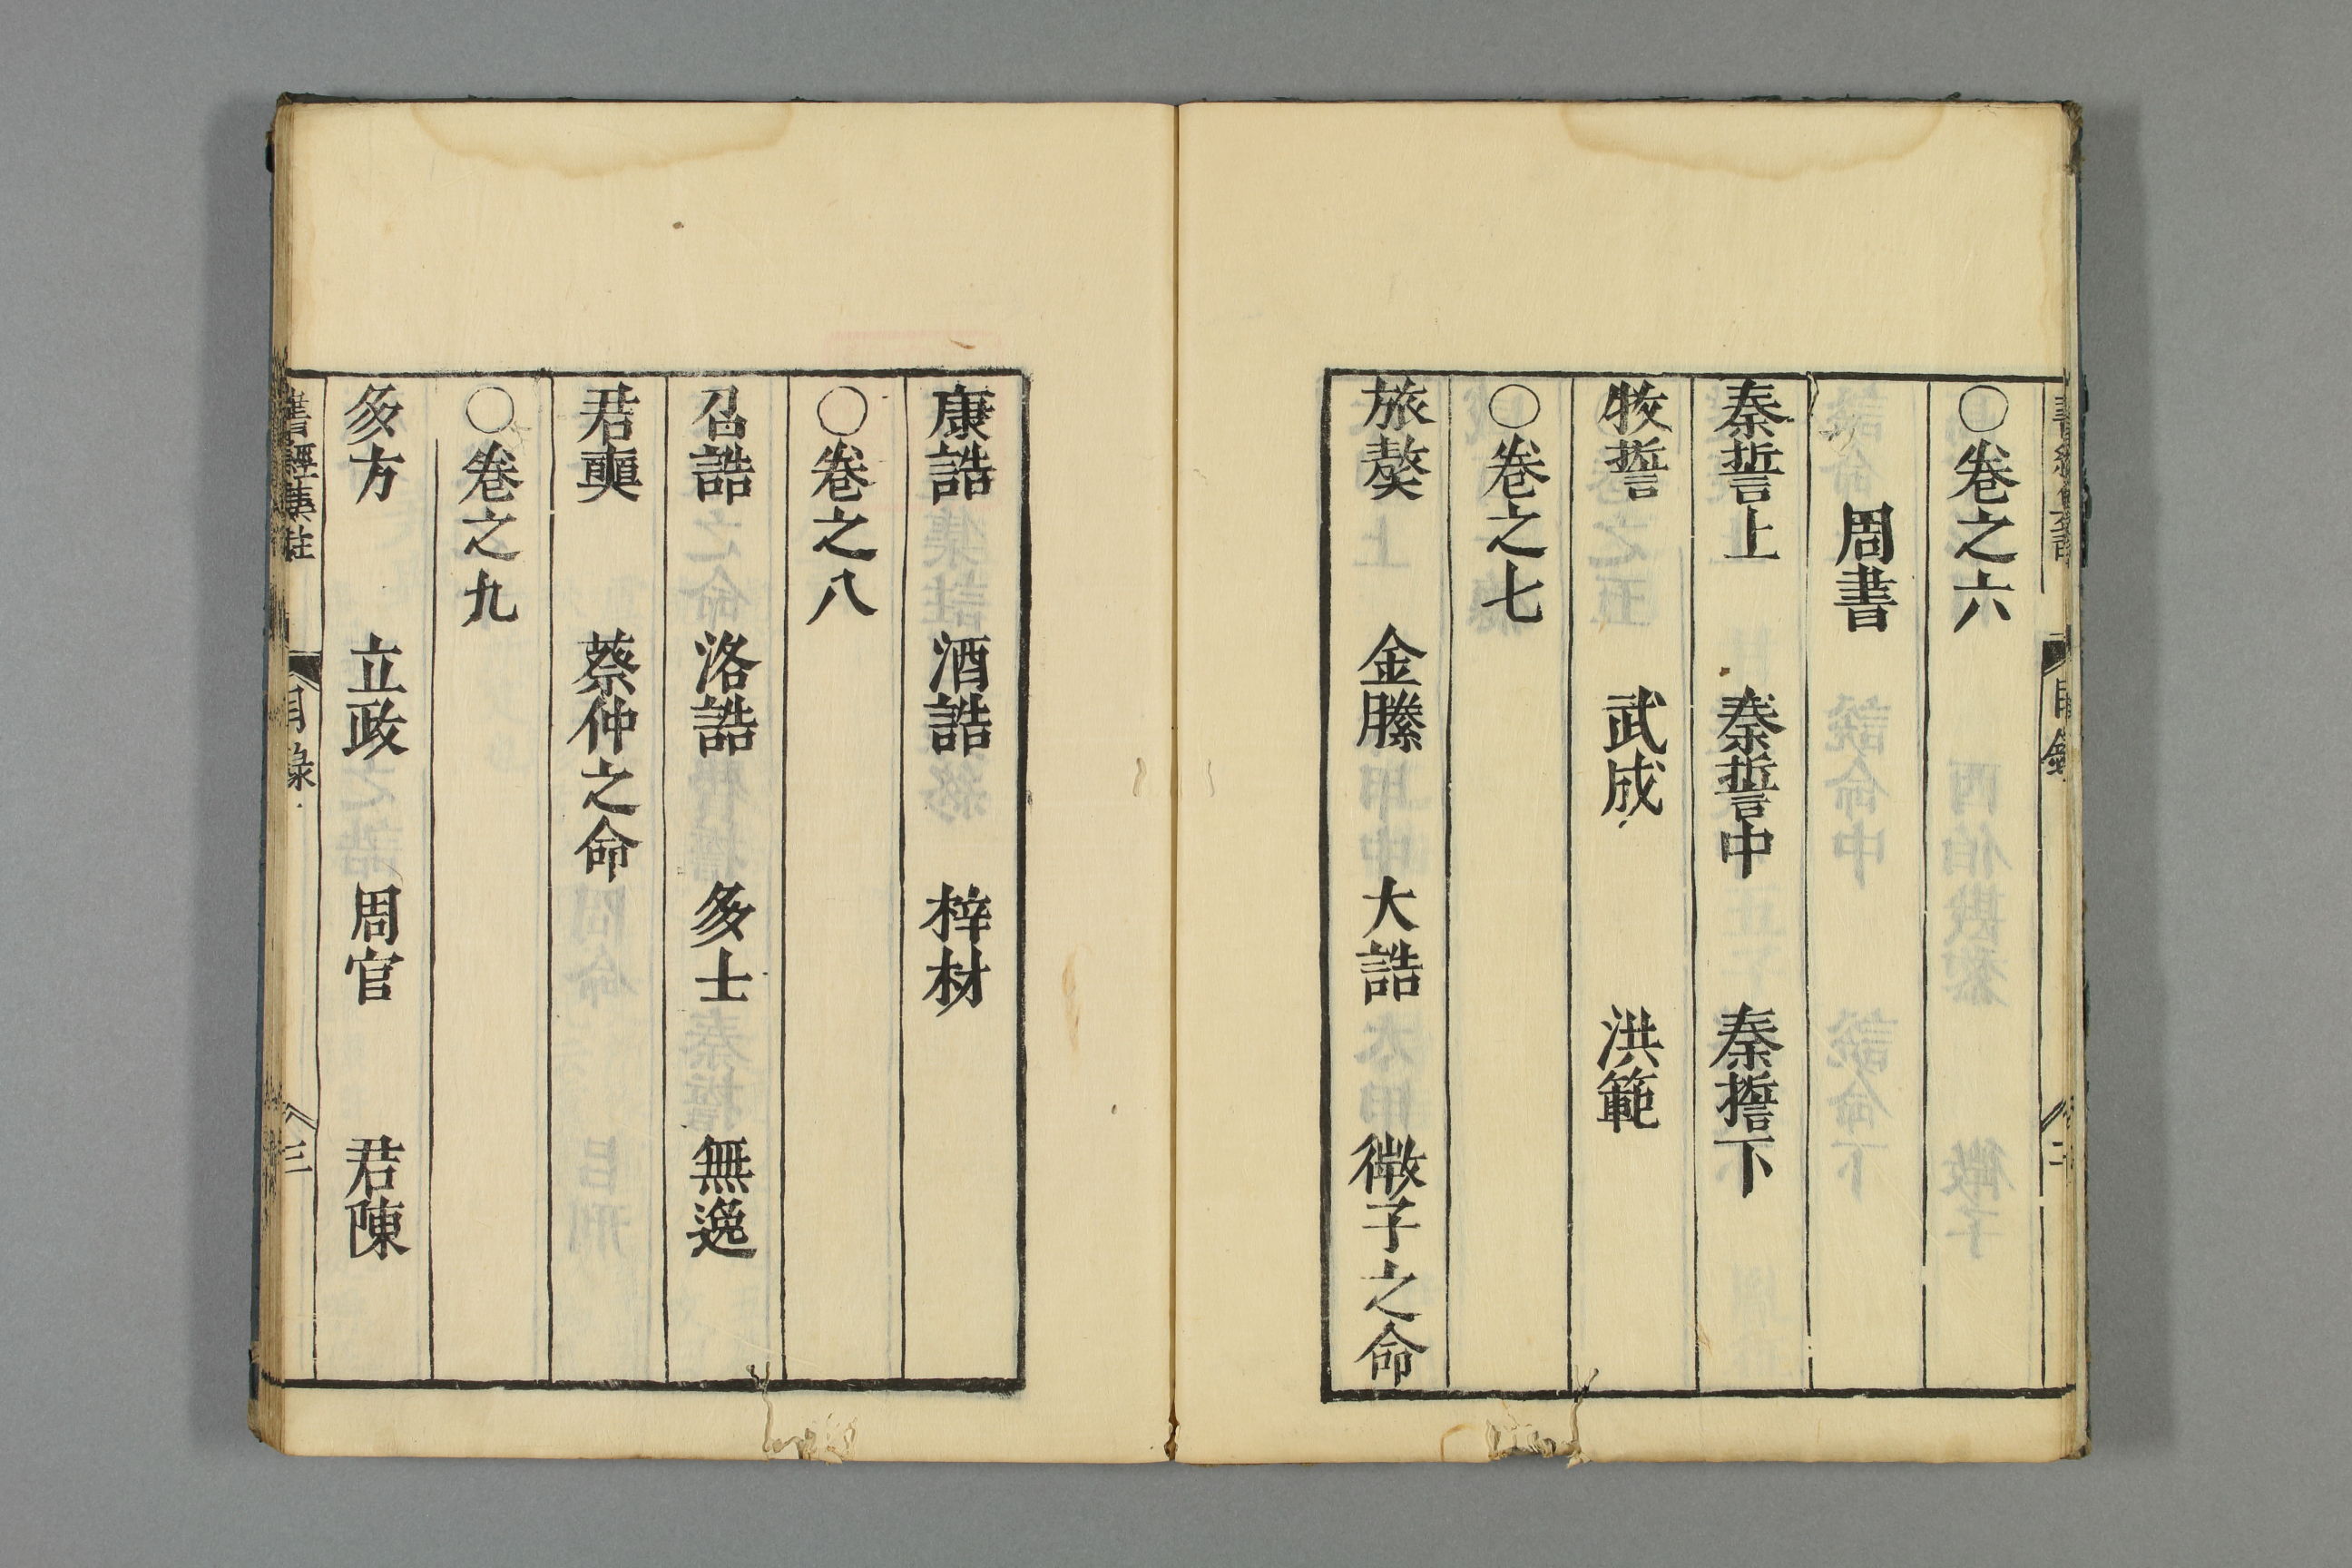 ○卷之六
周書
秦誓上 秦誓中 秦誓下
牧誓 武成 洪範
○卷之七
旅獒 金縢 大誥 微子之命
康誥 酒誥 梓材
○卷之八
召誥 洛誥 多士 無逸
君奭 蔡仲之命
○卷之九
多方 立政 周官 君陳
書經集註 目錄 三